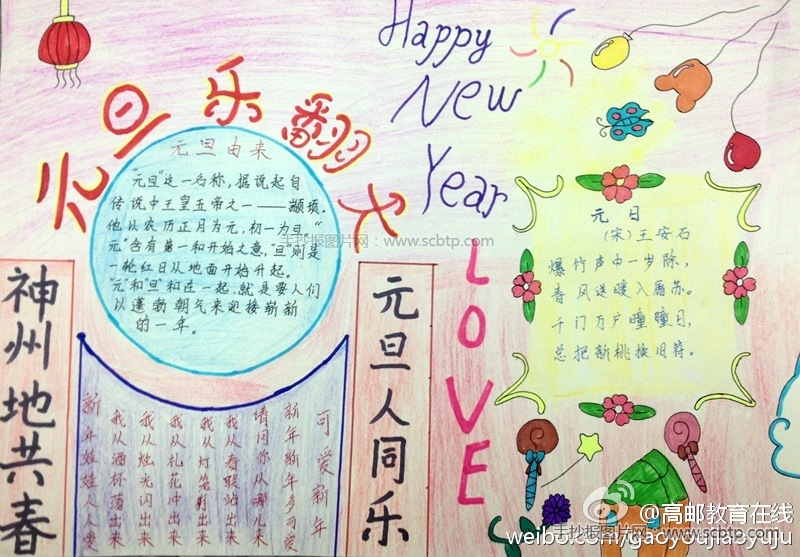 元旦乐翻天
Happy
New
Year
元旦由来
"元旦"这一名称，据说起自
传说中王皇五帝之一——颛顼。
他以农历正月为元，初一为旦。"
元"含有第一和开始之意，"旦"则是
一轮红日从地面开始升起。
"元"和"旦"和在一起，就是要人们
以蓬勃朝气来迎接崭新
的一年。
手抄报图片网：www.scbtp.com
元日
（宋）王安石
爆竹声中一岁除，
春风送暖入屠苏。
千门万户曈曈日，
总把新桃换旧符。
LOVE
神州地共春
元旦人同乐
可爱新年
新年新年多可爱
请问你从哪儿来
我从春联站出来
我从灯笼射出来
我从礼花冲出来
我从烛光闪出来
我从酒杯荡出来
新年娃娃人人爱
@高邮教育在线
weibo.com/gaoyoujiaoyuju